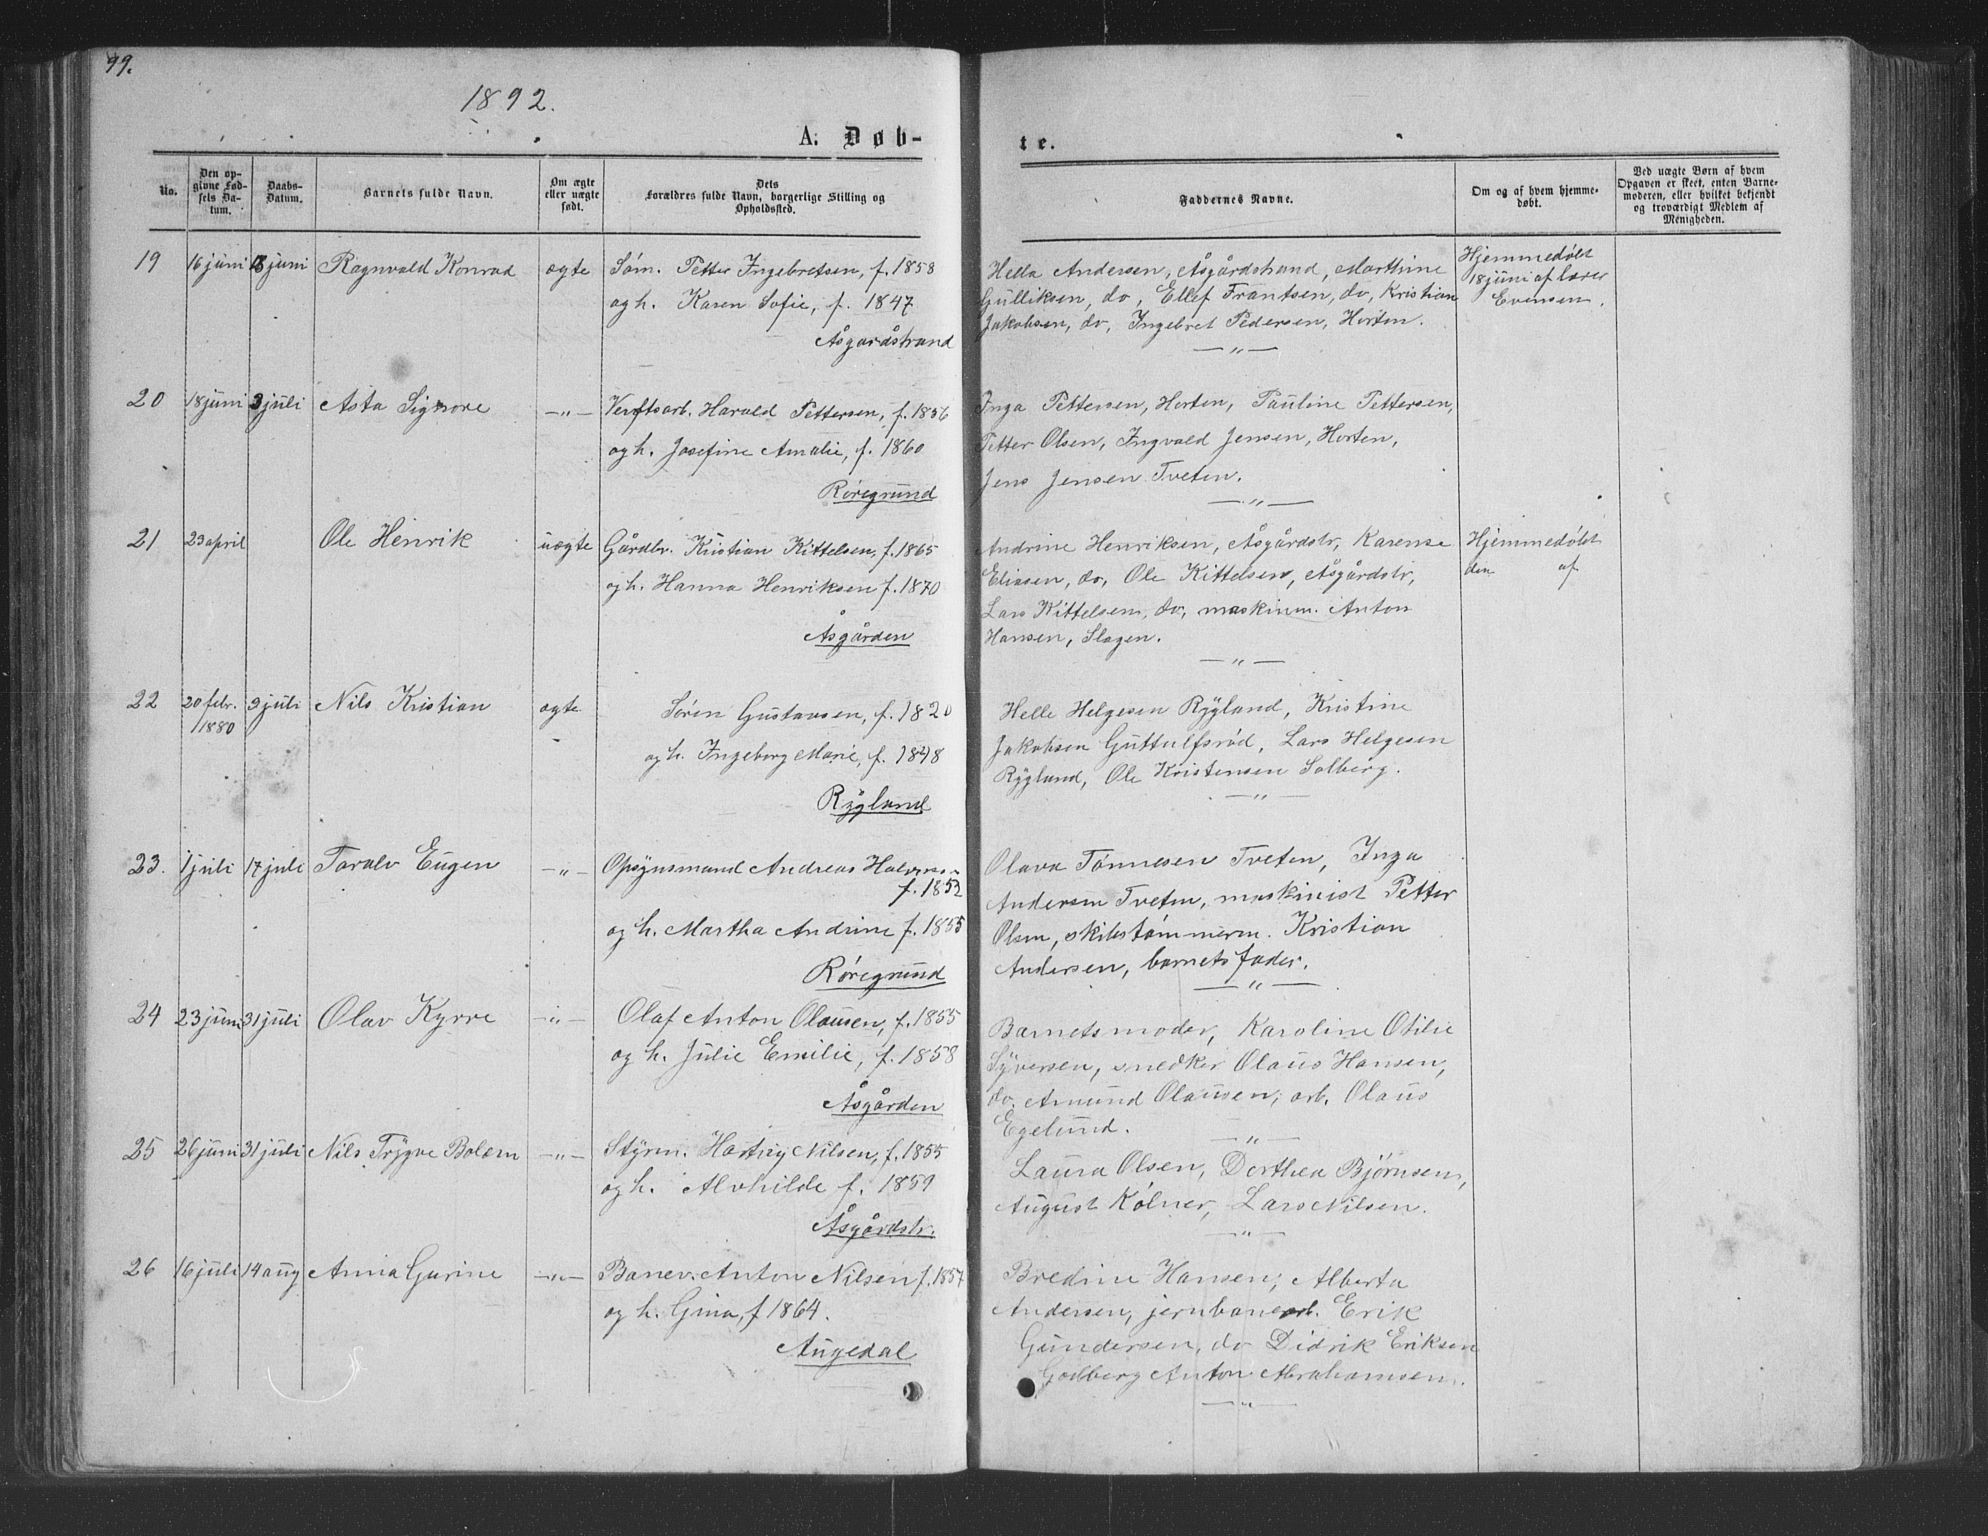 99.
1892.
A. Døb-
te.
No.
Den op-
givne Fød-
sels Da-
tum.
Daabs-
Datum.
Barnets fulde Navn.
Om ægte
eller uægte
født.
Dets
Forældres fulde Navn, borgerlige Stilling og
Opholdssted.
Faddernes Navne.
Om og af hvem hjemme-
døbt.
Ved uægte Børn af hvem
Opgaven er skeet, enten Barne-
moderen, eller hvilket bekjendt
og troværdigt Medlem af
Menigheden.
19 16 juni 18 juni Ragnvald Konrad ægte Søm. Petter Ingebretsen, f. 1858
og h. Karen Sofie, f. 1847
Åsgårdstrand
Hella Andersen, Åsgårdstrand, Marthine
Gulliksen, do, Ellef Frantsen, do, Kristian
Jakobsen, do, Ingebret Pedersen, Horten.
—"—
Hjemmedøbt
18 juni af lærer
Evensen.
20 18 juni 3 juli Asta Signore —"— Verftsarb. Harald Pettersen, f. 1856
og h. Josefine Amalie, f. 1860
Røregrund
Inga Pettersen, Horten, Pauline Pettersen,
Petter Olsen, Ingvald Jensen, Horten,
Jens Jensen Tveten.
—"—
21 23 april Ole Henrik uægte Gårdbr. Kristian Kittelsen, f. 1865
og h. Hanna Henriksen f. 1870
Åsgården
Andrine Henriksen, Åsgårdstr, Karense
Eliasen, do, Ole Kittelsen, Åsgårdstr,
Lars Kittelsen, do, maskinm. Anton
Hansen, Slagen.
—"—
Hjemmedøbt
den af
22 20 febr. 1880 3 juli Nils Kristian ægte Søren Gustavsen, f. 1820
og h. Ingeborg Marie, f. 1848
Rygland
Helle Helgesen Rygland, Kristine
Jakobsen Guttulfsrød, Lars Helgesen
Rygland, Ole Kristensen Solberg.
—"—
23. 1 juli 17 juli Toralv Eugen —"— Opsynsmand Andreas Halvorsen
f. 1852
og h. Martha Andrine f. 1855
Røregrund
Olava Tønnesen Tveten, Inga
Andersen Tveten, maskinist Petter
Olsen, skibstømmerm. Kristian
Andersen, barnets fader.
—"—
24 23 juni 31 juli Olav Kyrre —"— Olaf Anton Olausen, f. 1855
og h. Julie Emilie, f. 1858
Åsgården
Barnets moder, Karoline Otilie
Syversen, snedker Olaus Hansen,
do. Amund Olausen, arb. Olaus
Egelund.
—"—
25 26 juni 31 juli Nils Trygve Bolærn —"— Styrm. Hartvig Nilsen, f. 1855
og h. Alvhilde f. 1859
Åsgårdstr.
Laura Olsen, Dorthea Bjørnsen,
August Kølner, Lars Nilsen.
—"—
26 16 juli 14 aug Anna Gurine —"— Banev. Anton Nilsen f. 1857
og h. Gina, f 1864.
Augedal
Bredine Hansen, Alberta
Andersen, jernbanearb. Erik
Gundersen, do Didrik Eriksen
Godberg Anton Abrahamsen.
—"—